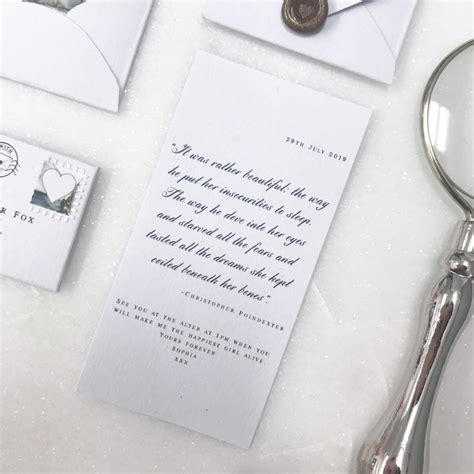 29TH JULY 2019
"It was rather beautiful: the way
he put her insecurities to sleep.
The way he dove into her eyes
and starved all the fears and
tasted all the dreams she kept
coiled beneath her bones."
-CHRISTOPHER POINDEXTER
SEE YOU AT THE ALTER AT 1PM WHEN YOU
WILL MAKE ME THE HAPPIEST GIRL ALIVE
YOURS FOREVER
SOPHIA
XXX
R FOX